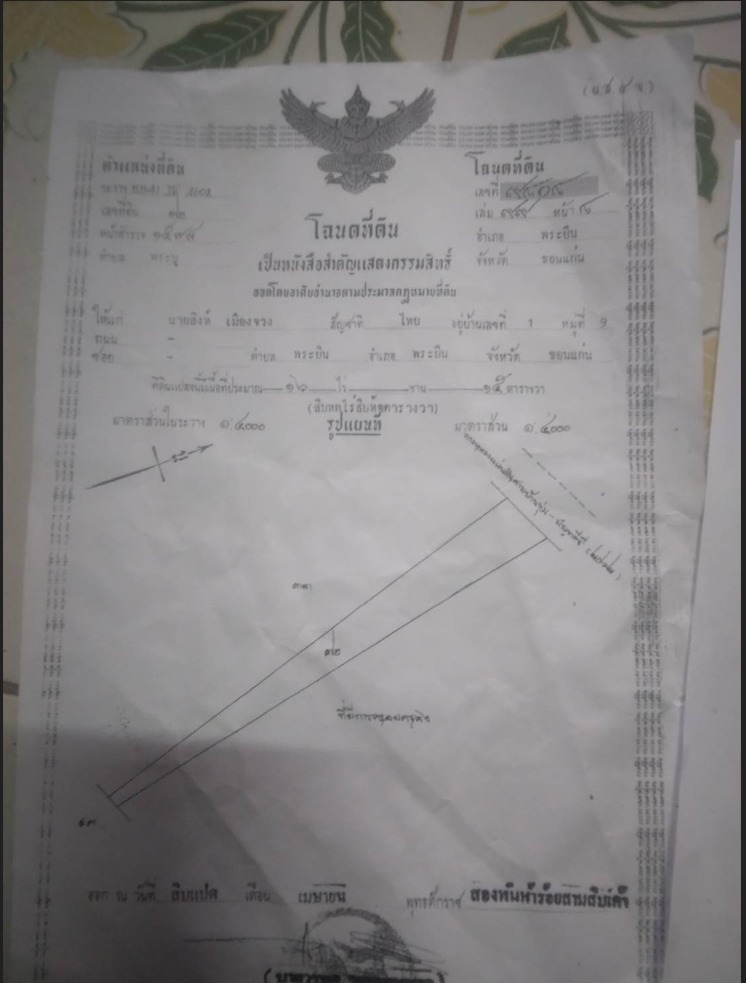 (น.ส.๔ จ)
ตำแหน่งที่ดิน
โฉนดที่ดิน
ระวาง 5541 IV
เลขที่
เลขที่ดิน ๓๒
เล่ม หน้า
โฉนดที่ดิน
หน้าสำรวจ
อำเภอ พระยืน
เป็นหนังสือสำคัญแสดงกรรมสิทธิ์
ตำบล พระบุ
จังหวัด ขอนแก่น
ออกโดยอาศัยอำนาจตามประมวลกฎหมายที่ดิน
ให้แก่ นายสิงห์ เมืองจวง สัญชาติ ไทย อยู่บ้านเลขที่ 1 หมู่ที่ 9
ถนน -
ซอย - ตำบล พระยืน อำเภอ พระยืน จังหวัด ขอนแก่น
ที่ดินแปลงนี้มีเนื้อที่ประมาณ ๑๖ ไร่ - งาน ๑๕ ตารางวา
(สิบหกไร่สิบห้าตารางวา)
มาตราส่วนในระวาง ๑:๔๐๐๐
รูปแผนที่
มาตราส่วน ๑:๔๐๐๐
๓๒
ที่มีการครอบครอง
ออก ณ วันที่ สิบแปด เดือน เมษายน พุทธศักราช สองพันห้าร้อยสามสิบเก้า